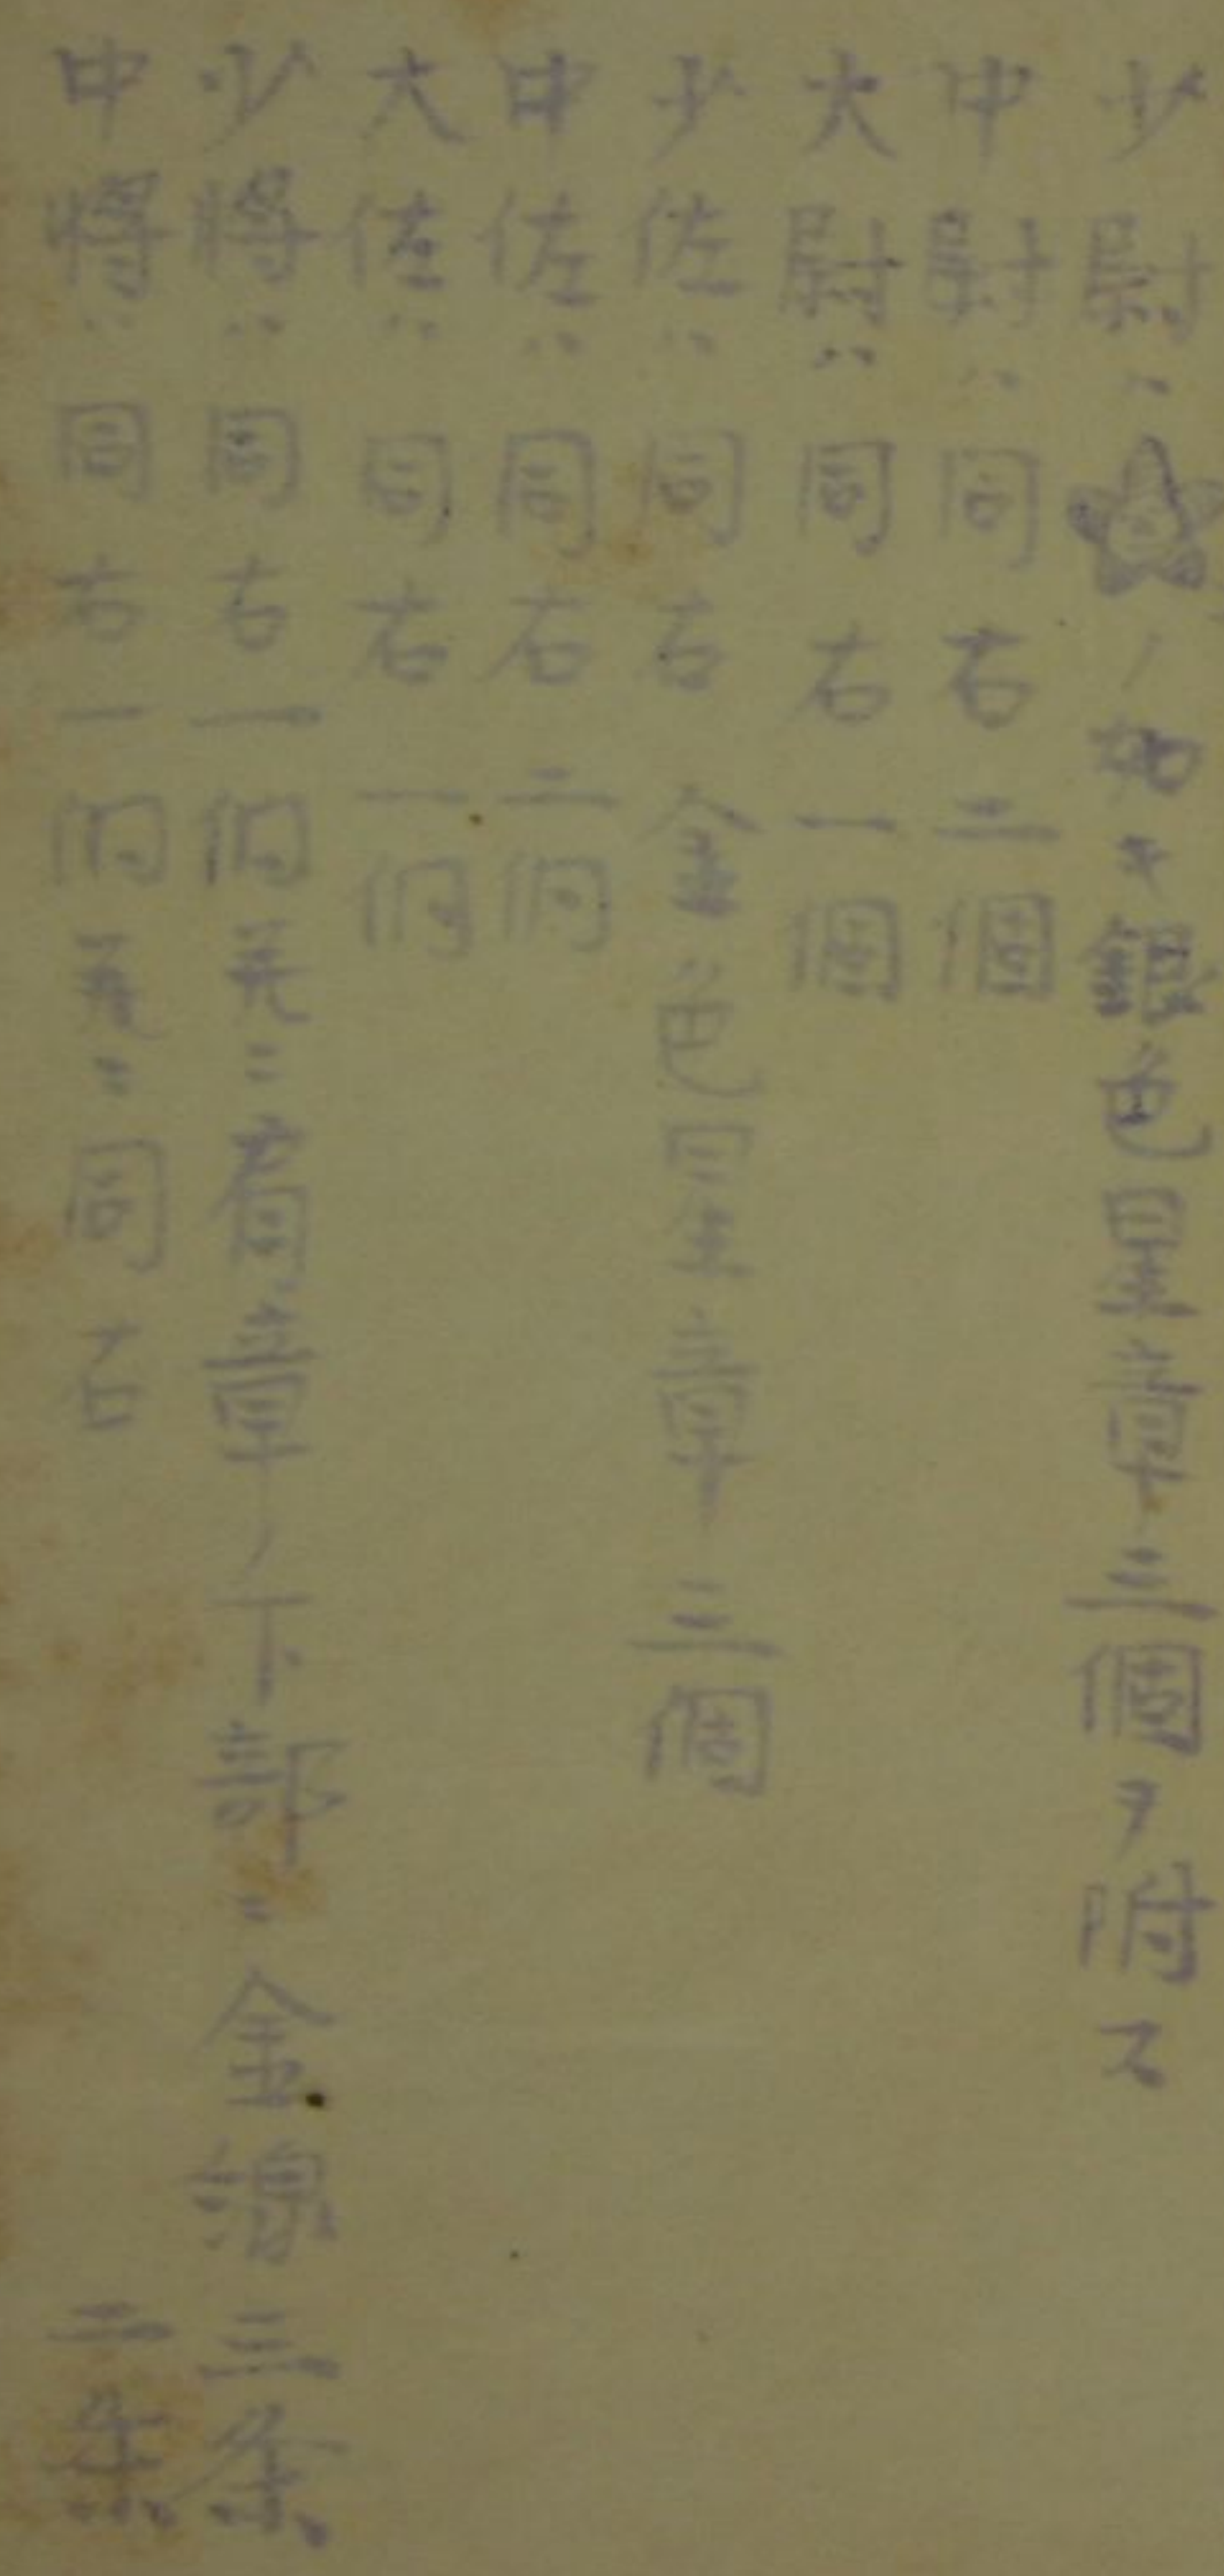 少尉ハ☆ノ如キ銀色星章三個ヲ附ス
中尉ハ同右二個
大尉ハ同右一個
少佐ハ同右金色星章三個
中佐ハ同右二個
大佐ハ同右一個
少将ハ同右一個並ニ肩章ノ下部ニ金線三条
中将ハ同右一個並ニ同右二条